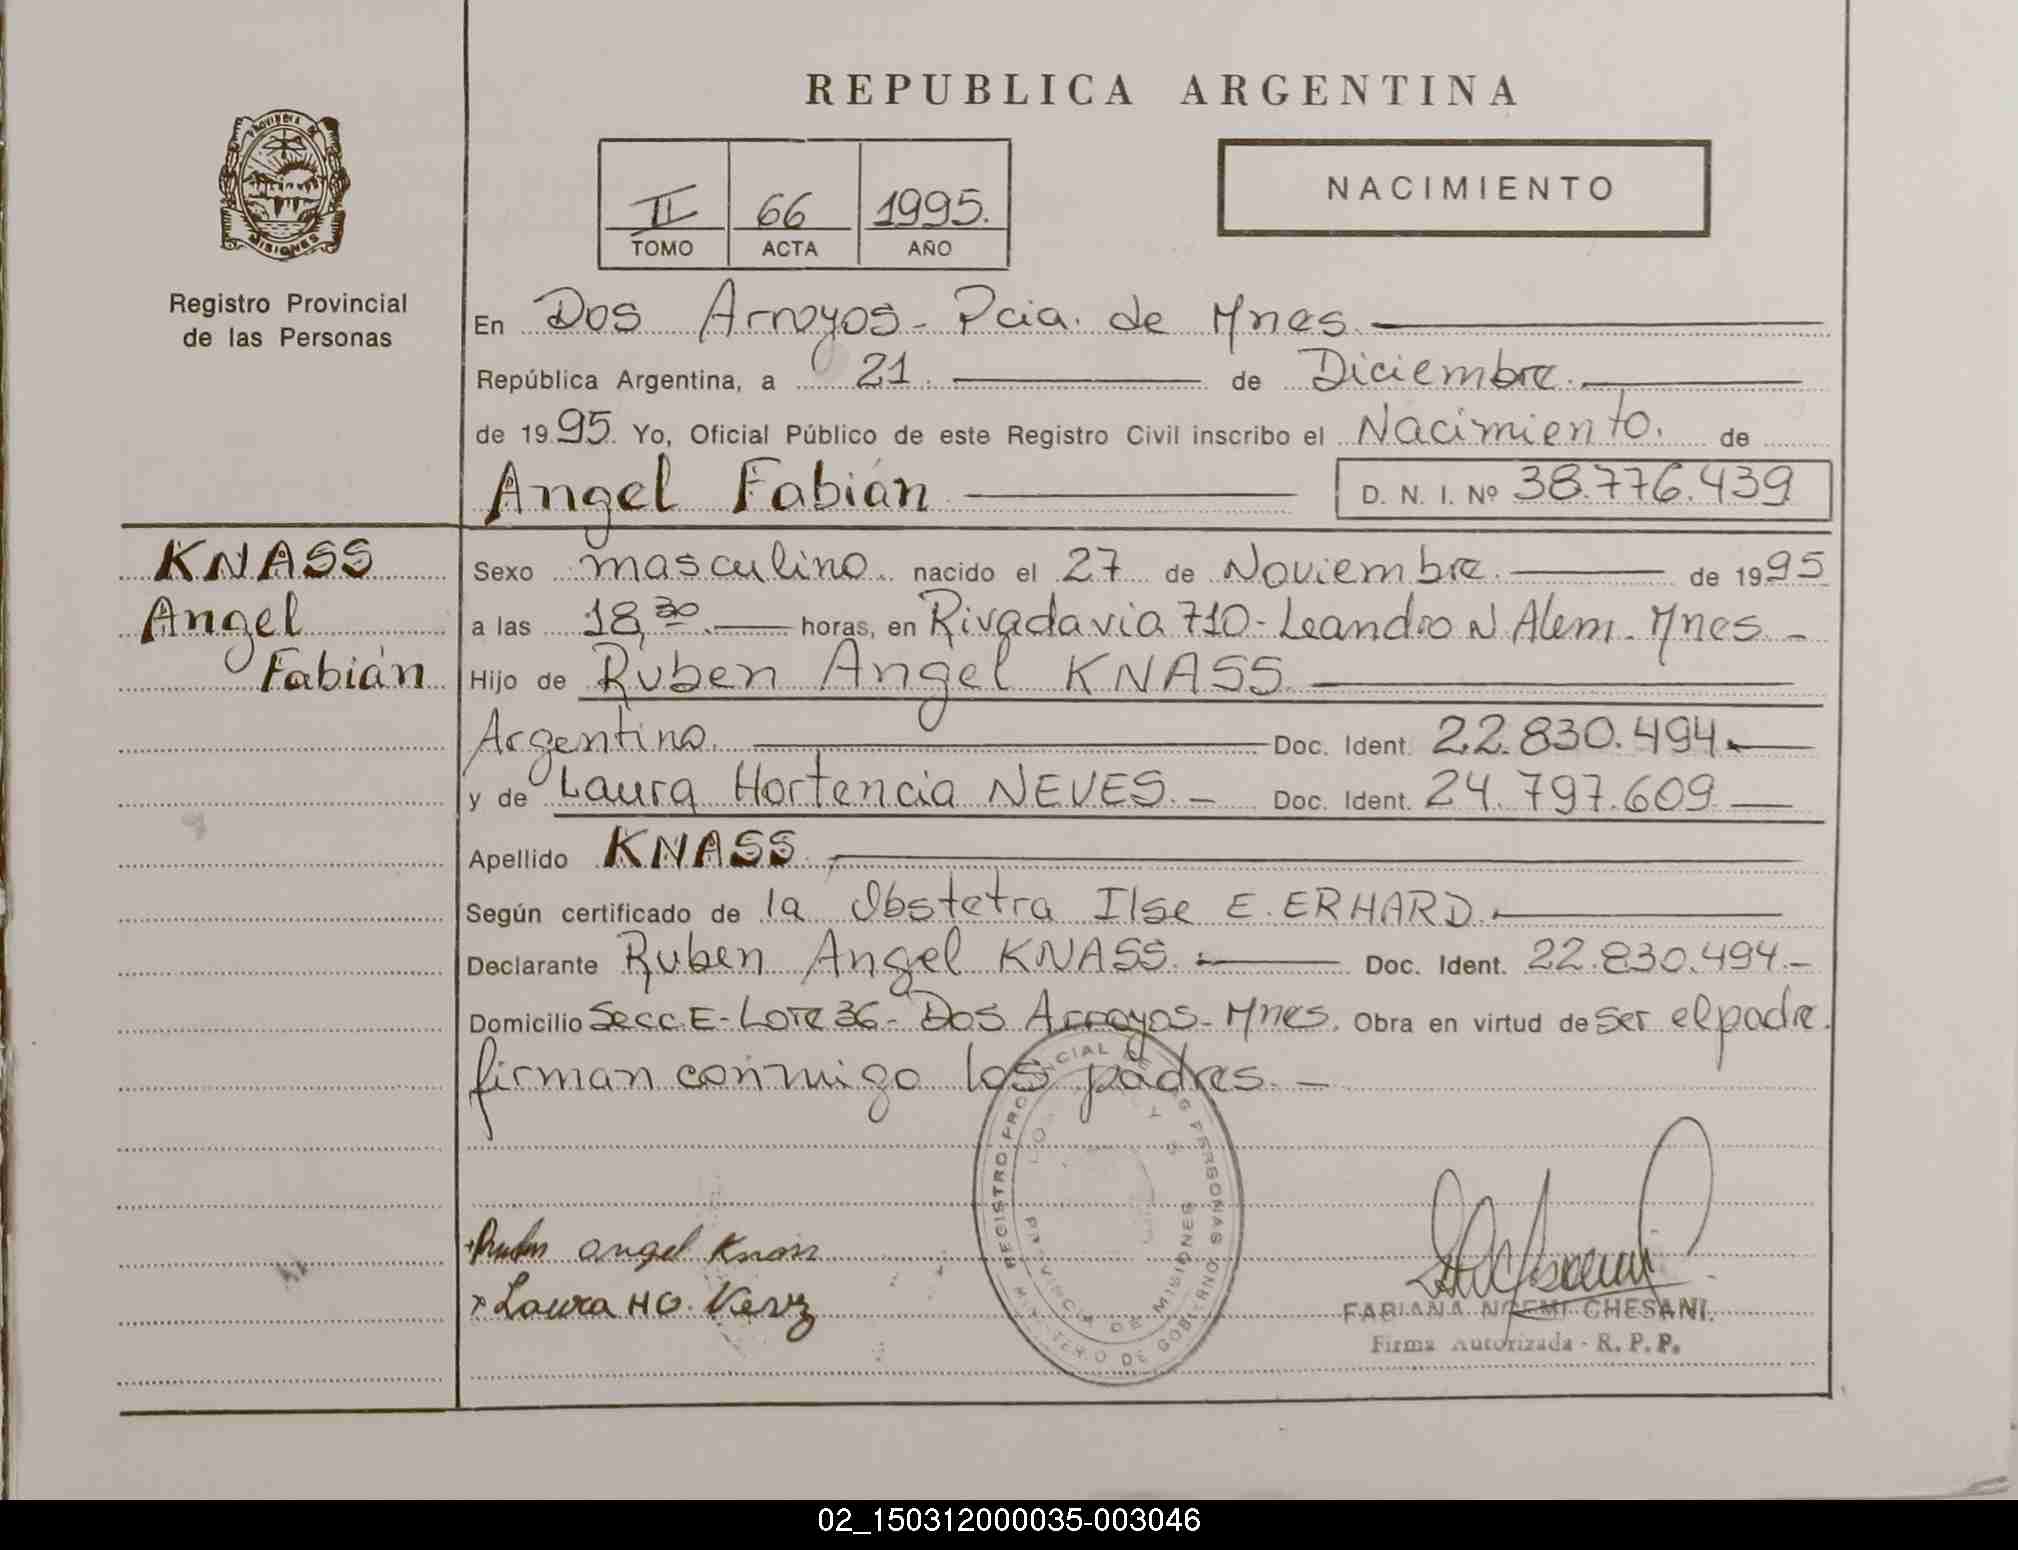 REPUBLICA ARGENTINA
PROVINCIA DE
MISIONES
Registro Provincial
de las Personas
II 66 1995.
TOMO ACTA AÑO
NACIMIENTO
En Dos Arroyos - Pcia. de Mnes.
República Argentina, a 21. de Diciembre.
de 1995. Yo, Oficial Público de este Registro Civil inscribo el Nacimiento. de
Angel Fabián D. N. I. Nº 38.776.439
KNASS
Angel
Fabián
Sexo masculino. nacido el 27 de Noviembre. de 1995
a las 18,30. horas, en Rivadavia 710 - Leandro N Alem - Mnes -
Hijo de Ruben Angel KNASS.
Argentino. Doc. Ident. 22.830.494.
y de Laura Hortencia NEVES. - Doc. Ident. 24.797.609
Apellido KNASS
Según certificado de la Obstetra Ilse E. ERHARD.
Declarante Ruben Angel KNASS. Doc. Ident. 22.830.494.-
Domicilio Secc. E - Lote 36 - Dos Arroyos - Mnes. Obra en virtud de ser el padre.
firman conmigo los padres. -
REGISTRO PROVINCIAL DE LAS PERSONAS
MINISTERIO DE GOBIERNO
PROVINCIA DE MISIONES
Ruben angel Knass
x Laura H.
FABIANA NOEMI CHESANI.
Firma Autorizada - R. P. P.
02_150312000035-003046